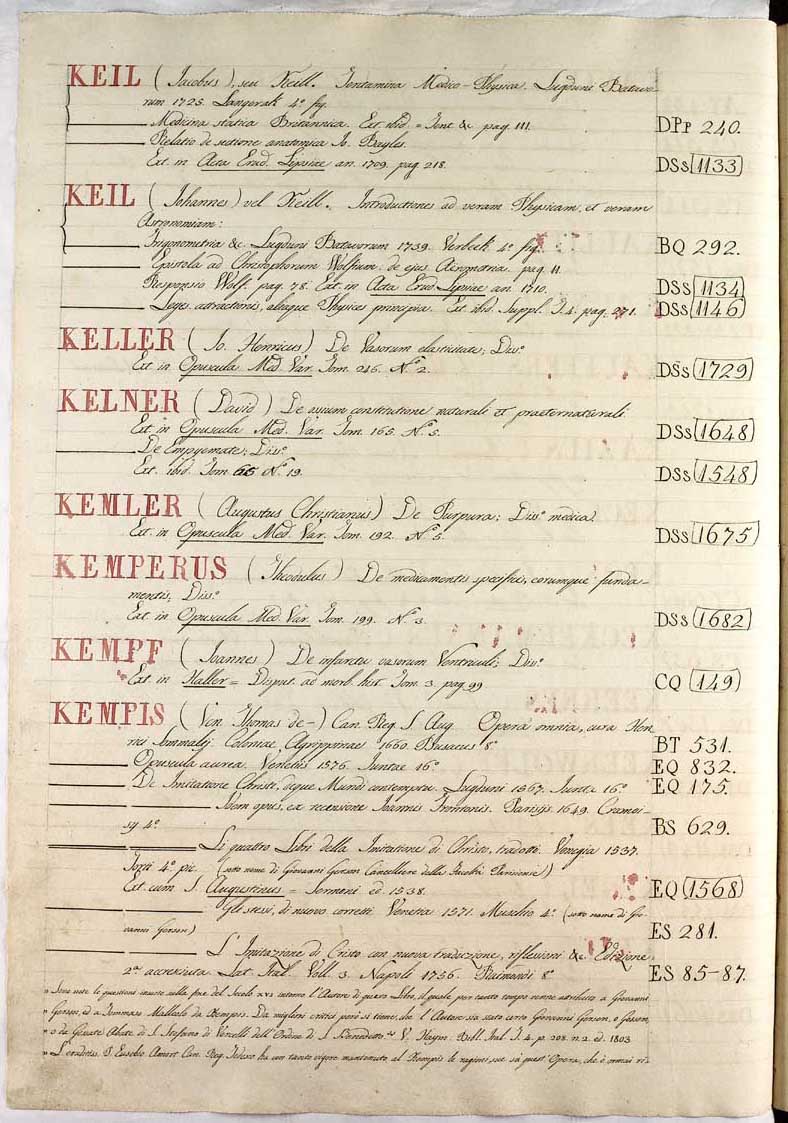 KEIL (Jacobus), seu Keill. Tentamina Medico-Physica. Lugduni Batavo-
rum 1725. Langerak 4º fig.
Medicina statica Britannica. Ext. ibid. = Tent &c. pag. 111. DPp 240.
Relatio de sectione anatomica Jo. Bayles.
Ext. in Acta Erud. Lipsiae an. 1709. pag. 218. DSs 1133
KEIL (Johannes) vel Keill. Introductiones ad veram Physicam, et veram
Astronomiam:
Trigonometria &c. Lugduni Batavorum 1739. Verbeek 4º fig. BQ 292.
Epistola ad Christophorum Wolfium: de ejus Aërometria. pag. 11.
Responsio Wolf. pag. 78. Ext. in Acta Erud Lipsiae an. 1710. DSs 1134
Leges attractionis, aliaque Physices principia. Ext. ibid. Suppl. T. 4. pag. 271. DSs 1146
KELLER (Jo. Henricus) De Vasorum elasticitate; Dis.º
Ext. in Opuscula Med. Var. Tom. 246. N.º 2. DSs 1729
KELNER (David) De assium constitutione naturali et praeternaturali
Ext. in Opuscula Med. Var. Tom. 165. N.º 5. DSs 1648
De Empyemate; Dis.º
Ext. ibid. Tom. 65 N.º 19. DSs 1548
KEMLER (Augustus Christianus) De Purpura; Dis.º medica.
Ext. in Opuscula Med. Var. Tom. 192. N.º 5. DSs 1675
KEMPERUS (Theodulus) De medicamentis specificis, eorumque funda-
mentis; Dis.º
Ext. in Opuscula Med. Var. Tom. 199. N.º 3. DSs 1682
KEMPF (Joannes) De infarctu vasorum Ventriculi; Dis.º
Ext. in Haller = Disput. ad morb. hist. Tom. 3. pag. 99 CQ 149
KEMPIS (Ven. Thomas de-) Can. Reg. S. Aug. Opera omnia, cura Hen-
rici Sommalij. Coloniae Agrippinae 1660. Busaeus 8º BT 531.
Opuscula aurea. Venetiis 1576. Juntae 16º EQ 832.
De Imitatione Christi, deque Mundi contemptu. Lugduni 1567. Junta 16º EQ 175.
Idem opus, ex recensione Joannis Frontonis. Parisijs 1649. Cramoi-
sy 4º. BS 629.
Li quattro Libri della Imitatione di Christo, tradotti. Venegia 1537.
4º pic. (sotto nome di Giovanni Gerson Cancelliere della Parisiense)
Ext. cum S. Augustinus = Sermoni ed. 1538. EQ 1568
Gli stessi, di nuovo corretti. Venetia 1571. Muschio 4º (sotto nome di Gio-
vanni Gerson) ES 281.
L'Imitazione di Cristo con nuova traduzione, riflessioni &c. Edizione
2ª accresciuta. Lat. Ital. Voll. 3. Napoli 1756. Raimondi 8º ES 85-87.
" Sono note le questioni insorte nella fine del Secolo XVI intorno l'Autore di questo Libro, il quale per tanto tempo venne attribuito a Giovanni
" Gerson, ed a Tommaso Malleolo da Kempis. Da migliori critici però si tiene, che l'Autore sia stato certo Giovanni Gersen, o Gessen,
" o da Cavate Abate di S. Stefano di Vercelli dell'Ordine di S. Benedetto. V. Haym. Bibl. Ital. T. 4. p. 208. n. 2. ed. 1803
" L'erudito P. Eusebio Amort Can. Reg. Tedesco ha con tanto vigore mantenuto al Kempis le ragioni sue su quest'Opera, che è ormai ri-